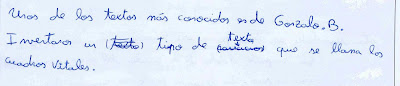 Unos de los textos más conocidos es de Gonzalo.B.
Inventaron un (texto) tipo de texto que se llama los
cuadros vitales.